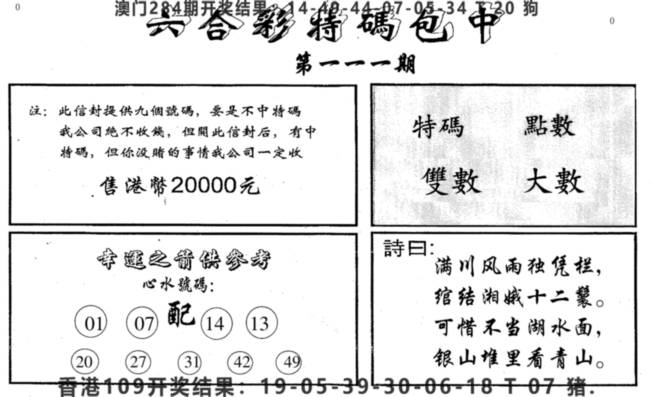 澳门284期开奖结果：14-49-44-07-05-34 T 20 狗
六合彩特碼包中
第一一一期
注：此信封提供九個號碼，要是不中特碼
我公司絶不收錢，但開此信封后，有中
特碼，但你没賭的事情我公司一定收
售港幣20000元
特碼 點數
雙數 大數
幸運之箭供參考
心水號碼：
01 07 配 14 13
20 27 31 42 49
詩曰：
满川风雨独凭栏，
绾结湘娥十二鬟。
可惜不当湖水面，
银山堆里看青山。
香港109开奖结果：19-05-39-30-06-18 T 07 猪.